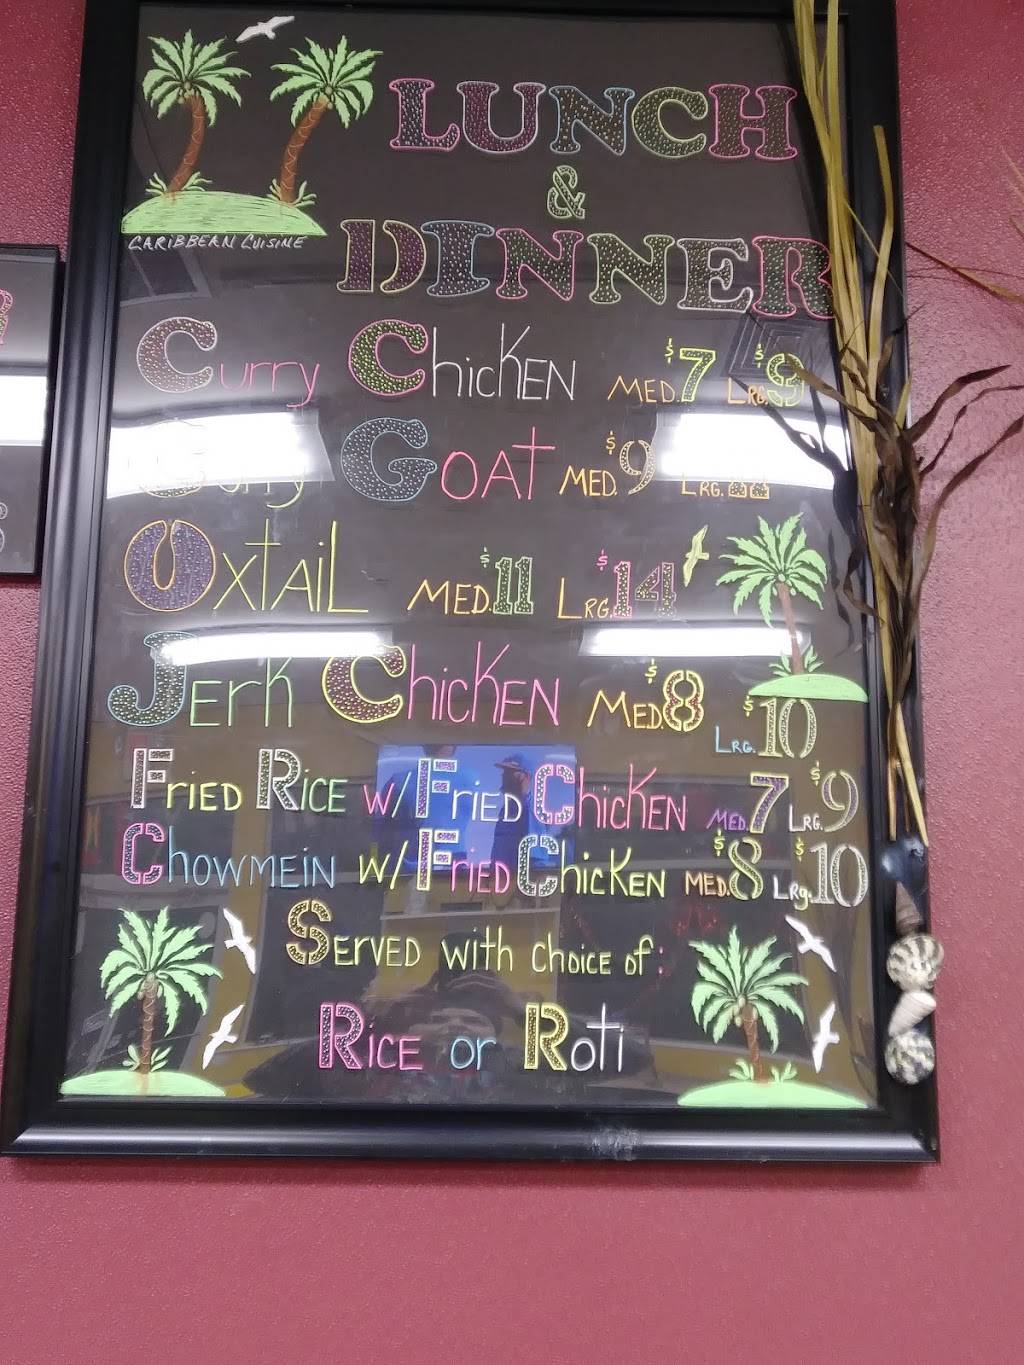 LUNCH
&
DINNER
CARIBBEAN CUISINE
Curry Chicken MED. $7 LRG. $9
Curry Goat MED. $9 LRG. 
Oxtail MED. $11 LRG. $14
Jerk Chicken MED. $8 LRG. $10
Fried Rice w/ Fried Chicken MED. 7 LRG. $9
Chowmein w/ Fried Chicken MED. $8 LRg. $10
Served with choice of:
Rice or Roti